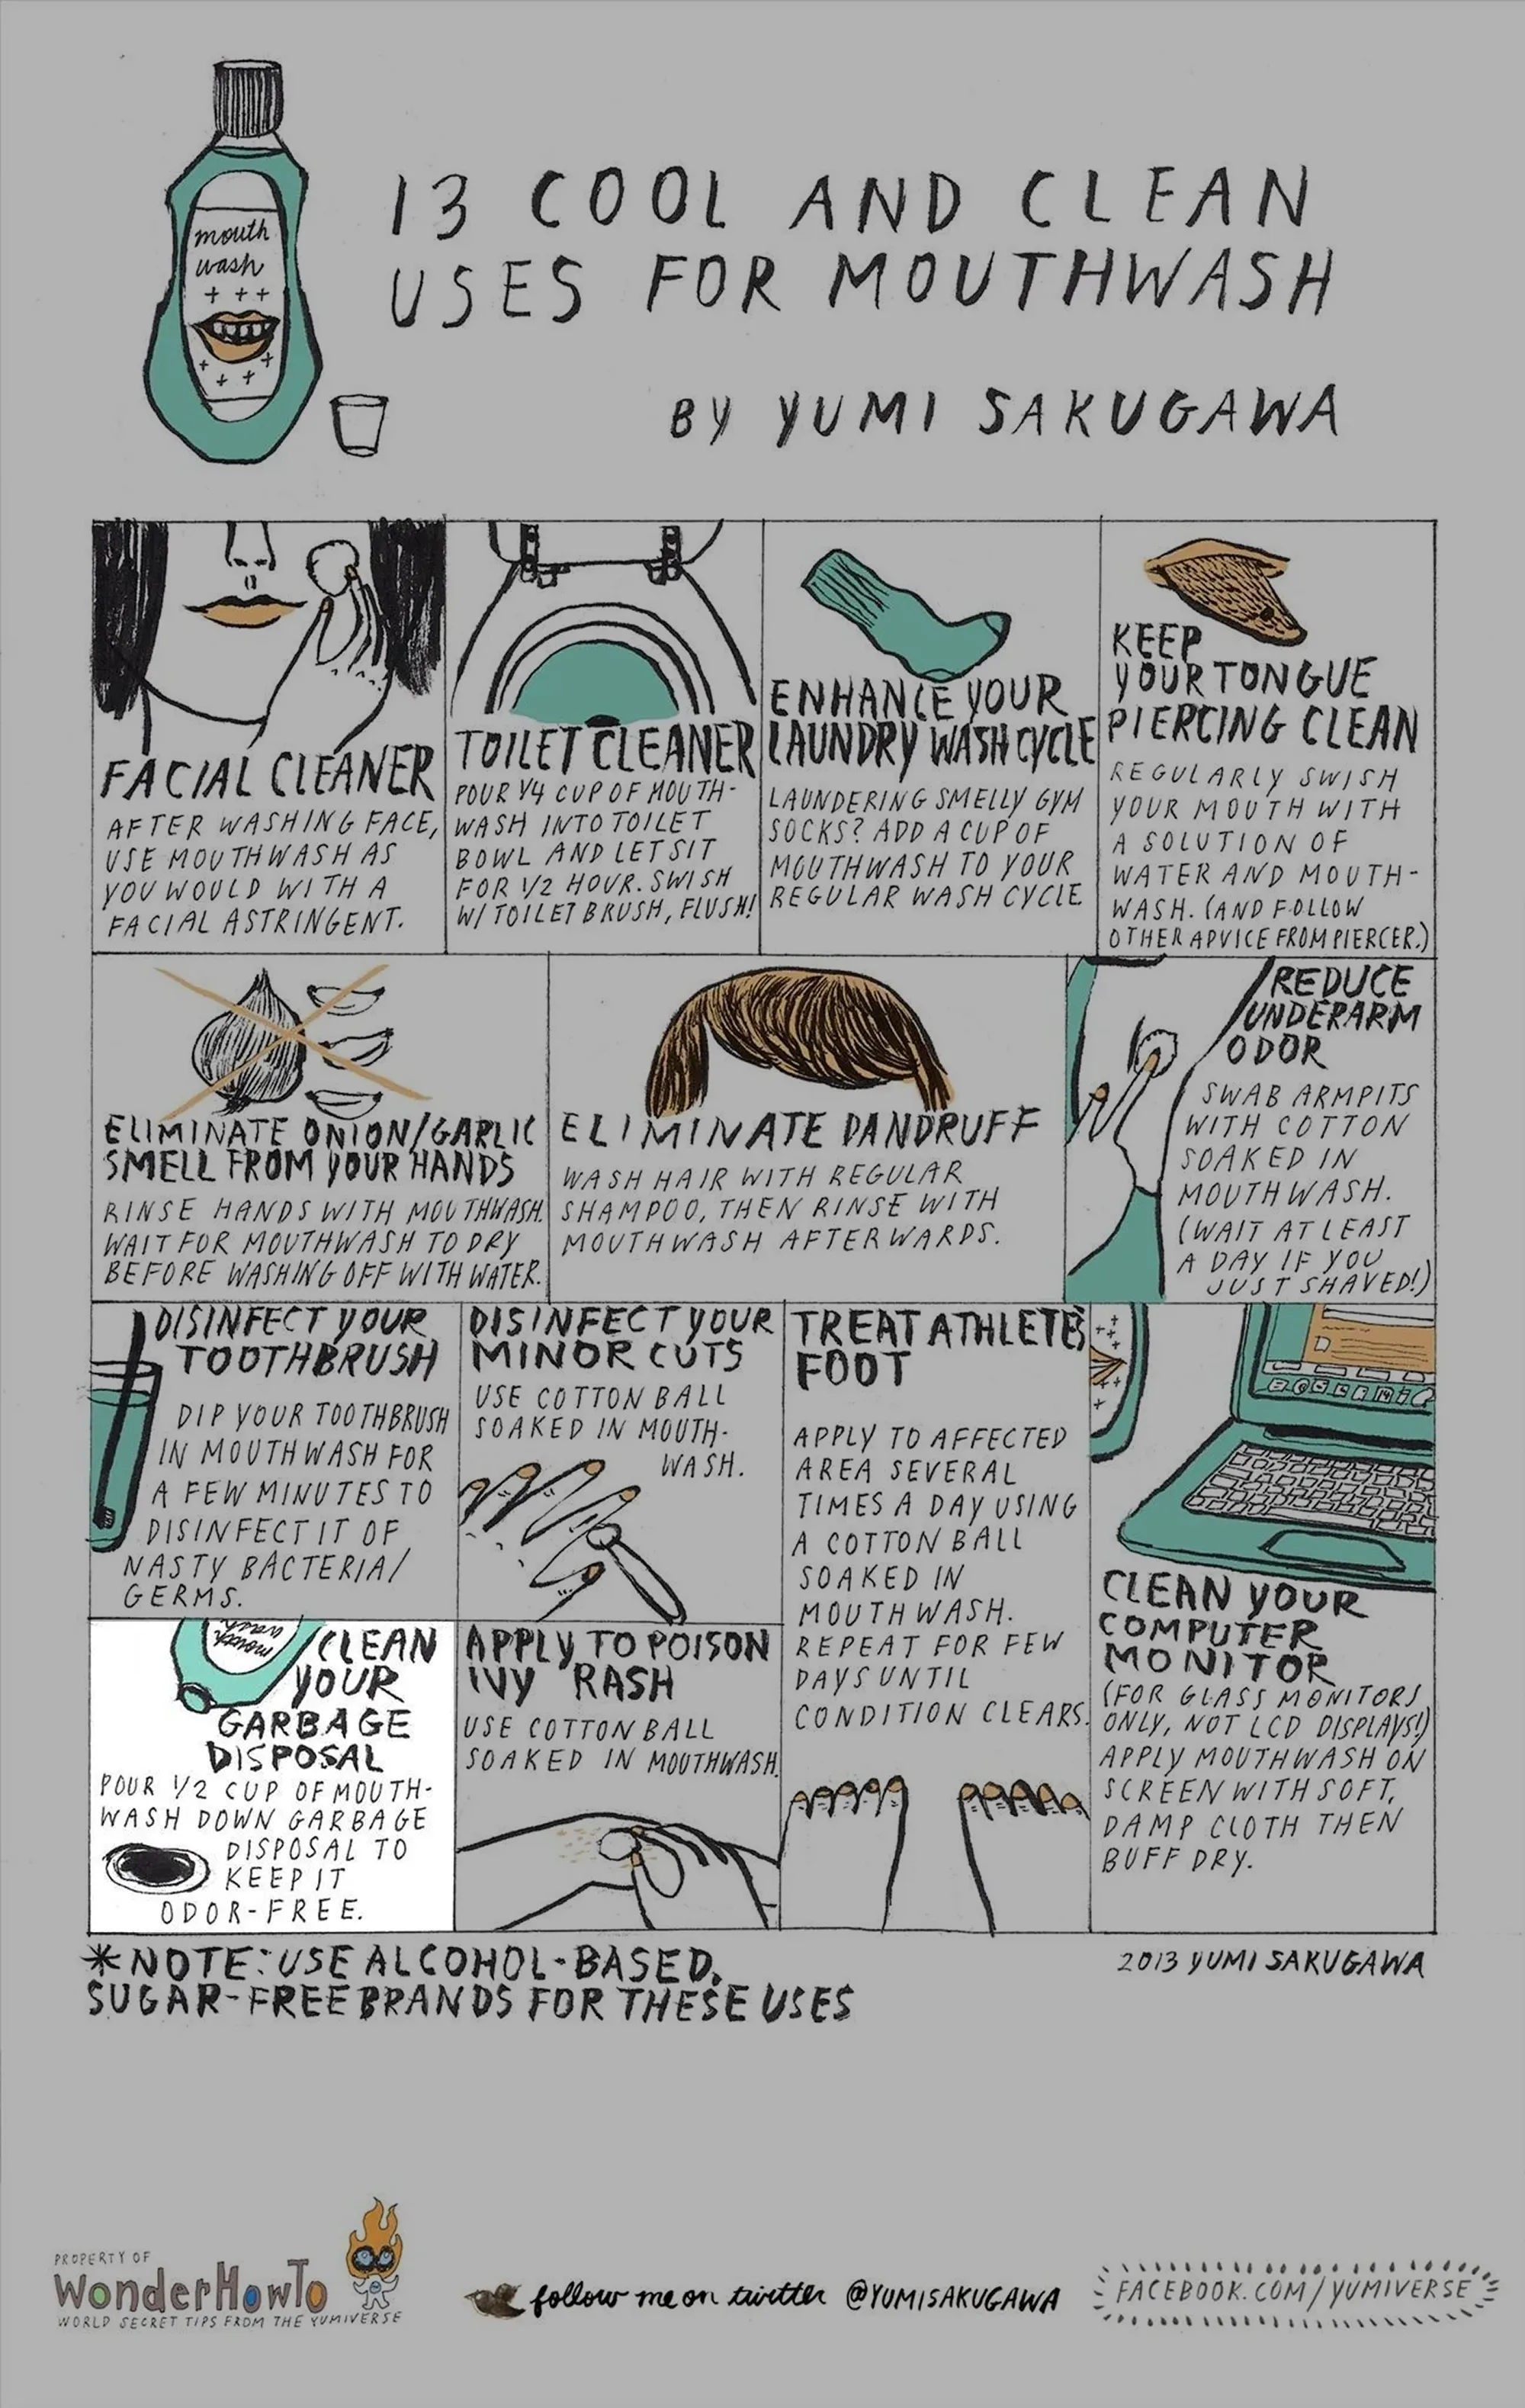 mouth
wash
13 COOL AND CLEAN
USES FOR MOUTHWASH
BY YUMI SAKUGAWA
FACIAL CLEANER
AFTER WASHING FACE,
USE MOUTHWASH AS
YOU WOULD WITH A
FACIAL ASTRINGENT.
TOILET CLEANER
POUR 1/4 CUP OF MOUTH-
WASH INTO TOILET
BOWL AND LET SIT
FOR 1/2 HOUR. SWISH
W/ TOILET BRUSH, FLUSH!
ENHANCE YOUR
LAUNDRY WASH CYCLE
LAUNDERING SMELLY GYM
SOCKS? ADD A CUP OF
MOUTHWASH TO YOUR
REGULAR WASH CYCLE
KEEP
YOUR TONGUE
PIERCING CLEAN
REGULARLY SWISH
YOUR MOUTH WITH
A SOLUTION OF
WATER AND MOUTH-
WASH. (AND FOLLOW
OTHER ADVICE FROM PIERCER.)
ELIMINATE ONION/GARLIC
SMELL FROM YOUR HANDS
RINSE HANDS WITH MOUTHWASH.
WAIT FOR MOUTHWASH TO DRY
BEFORE WASHING OFF WITH WATER.
ELIMINATE DANDRUFF
WASH HAIR WITH REGULAR
SHAMPOO, THEN RINSE WITH
MOUTHWASH AFTERWARDS.
REDUCE
UNDERARM
ODOR
SWAB ARMPITS
WITH COTTON
SOAKED IN
MOUTHWASH.
(WAIT AT LEAST
A DAY IF YOU
JUST SHAVED!)
DISINFECT YOUR
TOOTHBRUSH
DIP YOUR TOOTHBRUSH
IN MOUTHWASH FOR
A FEW MINUTES TO
DISINFECT IT OF
NASTY BACTERIA/
GERMS.
DISINFECT YOUR
MINOR CUTS
USE COTTON BALL
SOAKED IN MOUTH-
WASH.
TREAT ATHLETE'S
FOOT
APPLY TO AFFECTED
AREA SEVERAL
TIMES A DAY USING
A COTTON BALL
SOAKED IN
MOUTHWASH.
REPEAT FOR FEW
DAYS UNTIL
CONDITION CLEARS.
CLEAN YOUR
COMPUTER
MONITOR
(FOR GLASS MONITORS
ONLY, NOT LCD DISPLAYS!)
APPLY MOUTHWASH ON
SCREEN WITH SOFT,
DAMP CLOTH THEN
BUFF DRY.
mouth
wash
CLEAN
YOUR
GARBAGE
DISPOSAL
POUR 1/2 CUP OF MOUTH-
WASH DOWN GARBAGE
DISPOSAL TO
KEEP IT
ODOR-FREE.
APPLY TO POISON
IVY RASH
USE COTTON BALL
SOAKED IN MOUTHWASH.
*NOTE: USE ALCOHOL-BASED,
SUGAR-FREE BRANDS FOR THESE USES
2013 YUMI SAKUGAWA
PROPERTY OF
WonderHowTo
WORLD SECRET TIPS FROM THE YUMIVERSE
follow me on twitter @YUMISAKUGAWA
FACEBOOK.COM/YUMIVERSE